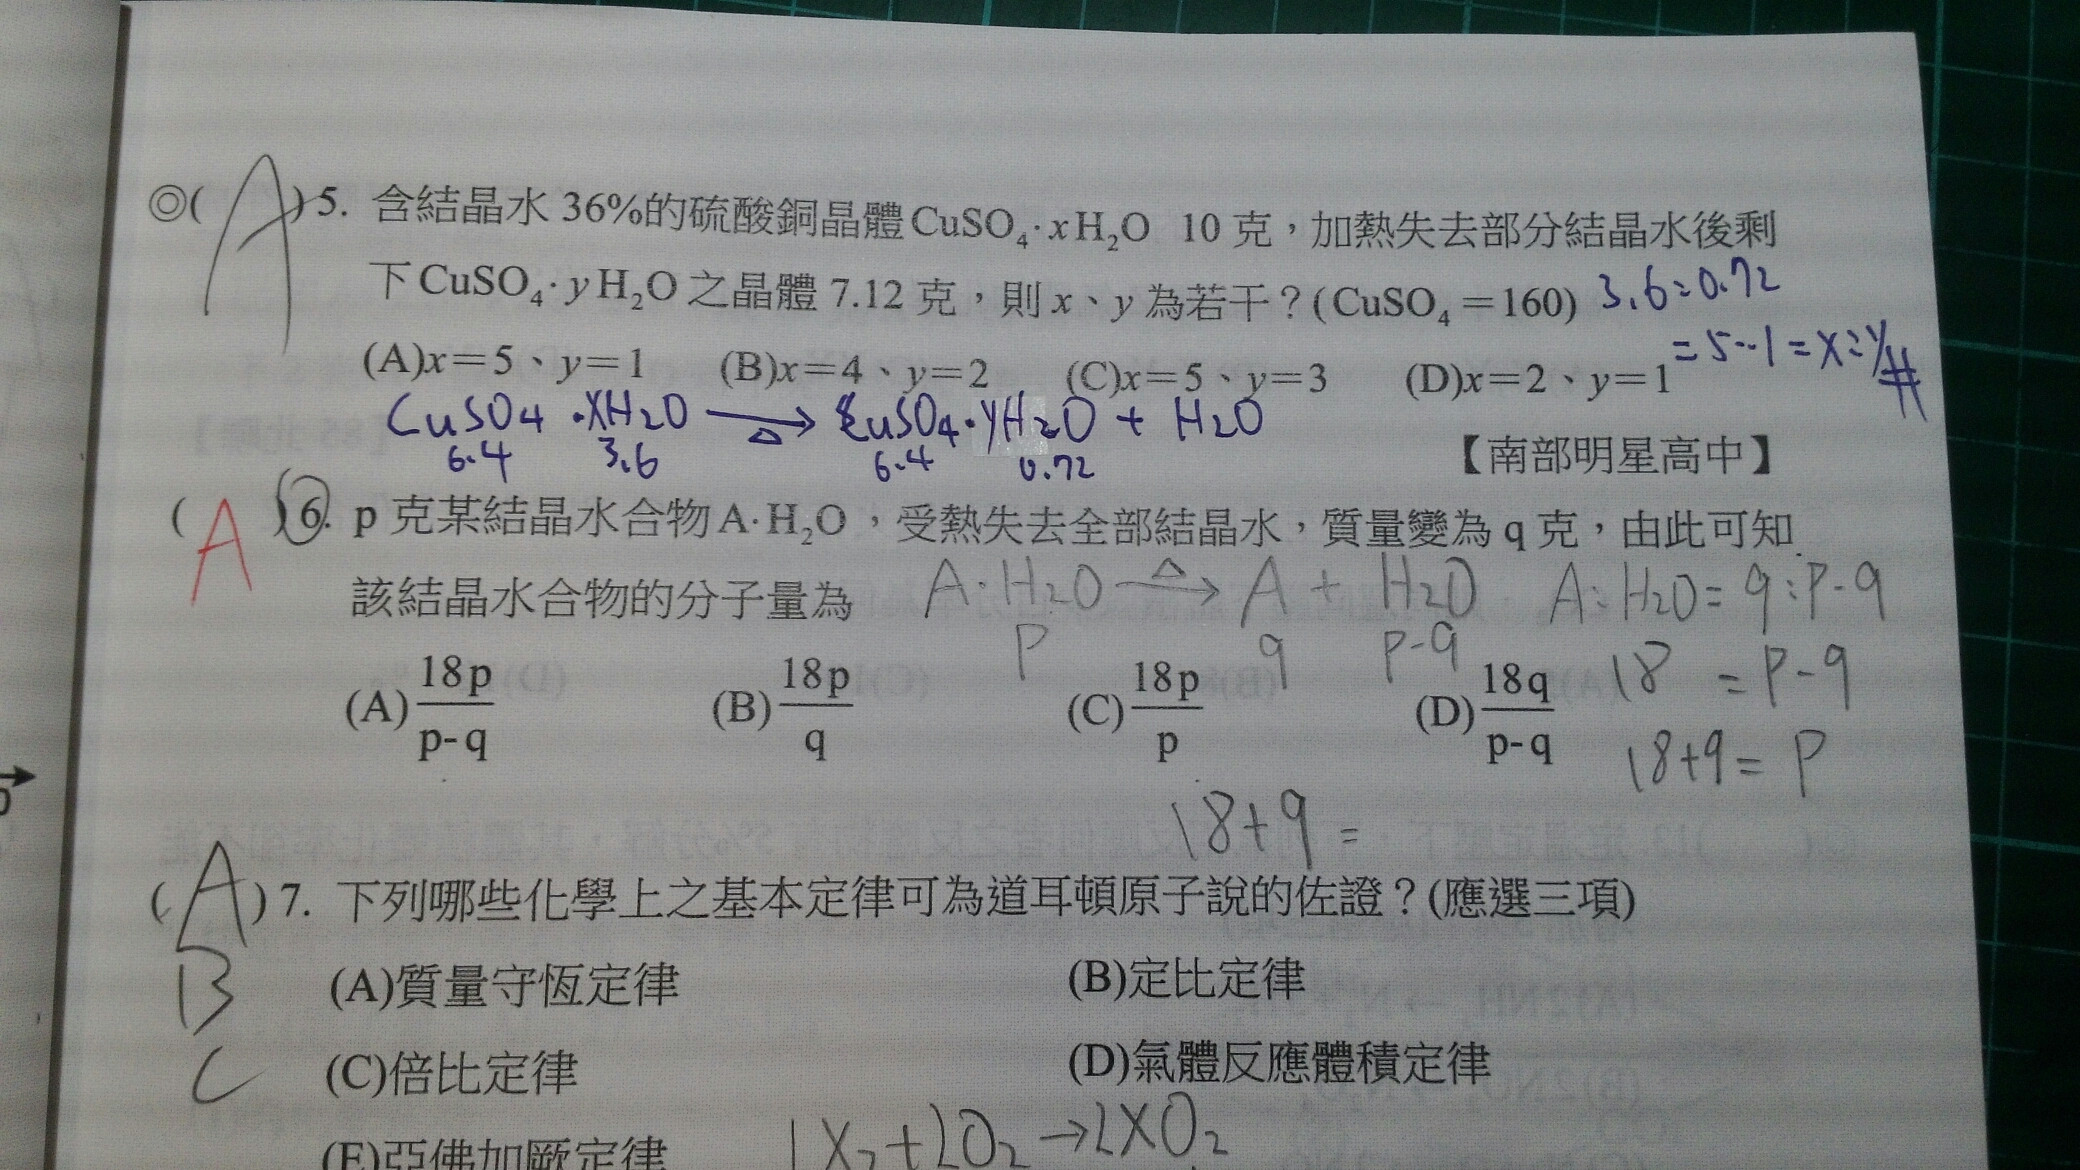 ◎( A )5. 含結晶水 36%的硫酸銅晶體CuSO₄·xH₂O 10 克，加熱失去部分結晶水後剩
下CuSO₄·yH₂O 之晶體 7.12 克，則 x、y 為若干？(CuSO₄＝160) 3.6:0.72
(A)x＝5、y＝1 (B)x＝4、y＝2 (C)x＝5、y＝3 (D)x＝2、y＝1 =5:1=x:y#
CuSO4·XH2O →△ CuSO4·yH2O + H2O
6.4 3.6 6.4 0.72
【南部明星高中】
( A )6. p 克某結晶水合物A·H₂O，受熱失去全部結晶水，質量變為 q 克，由此可知
該結晶水合物的分子量為 A·H2O △→ A + H2O A:H2O=q:P-q
P q P-q
(A) 18p/p-q (B) 18p/q (C) 18p/p (D) 18q/p-q 18 = P-q
18+q= P
18+q=
( A )7. 下列哪些化學上之基本定律可為道耳頓原子說的佐證？(應選三項)
B (A)質量守恆定律 (B)定比定律
C (C)倍比定律 (D)氣體反應體積定律
(E)亞佛加厥定律 1X2+2O2→2XO2